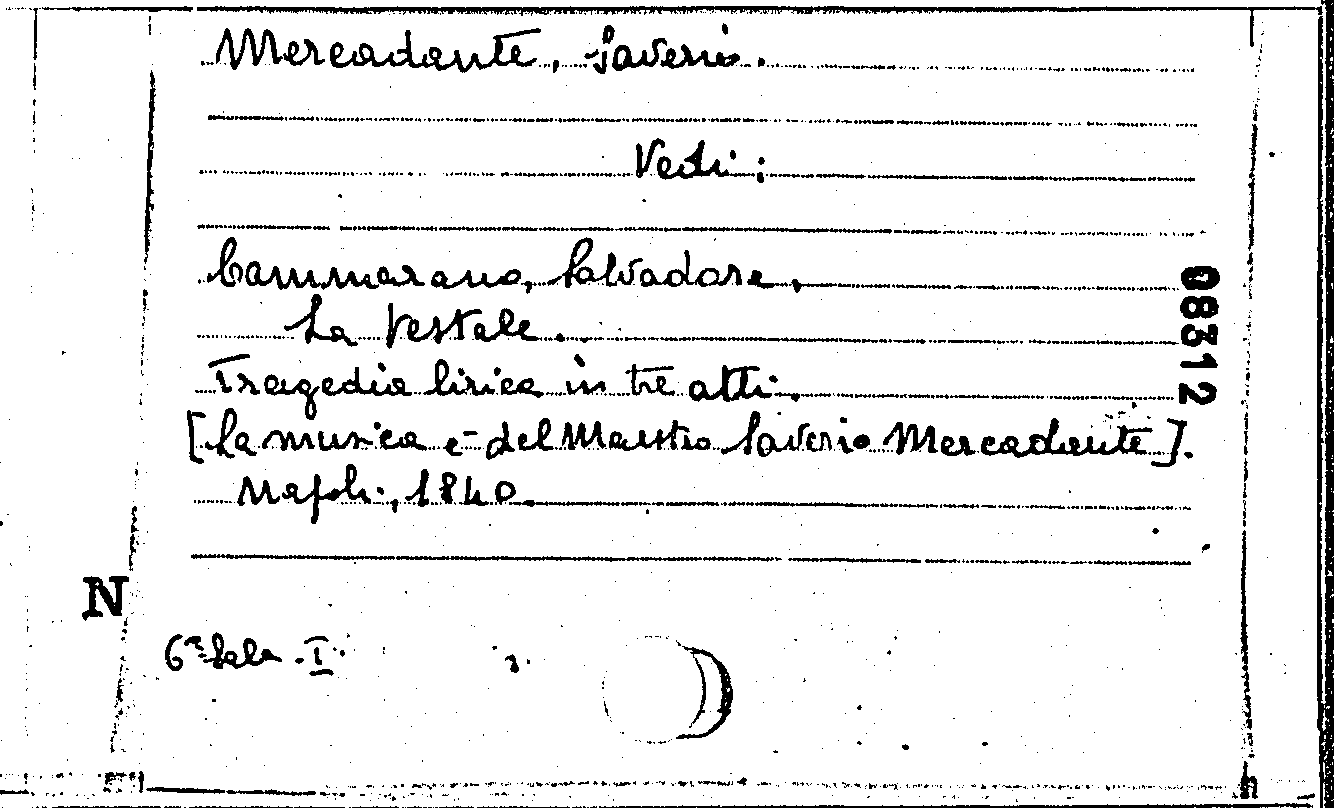 Mercadante, Saverio.
Vedi:
Cammarano, Salvadore,
La Vestale.
Tragedia lirica in tre atti.
[La musica è del Maestro Saverio Mercadante].
Napoli, 1840.
08312
N
6ª Sala. I.